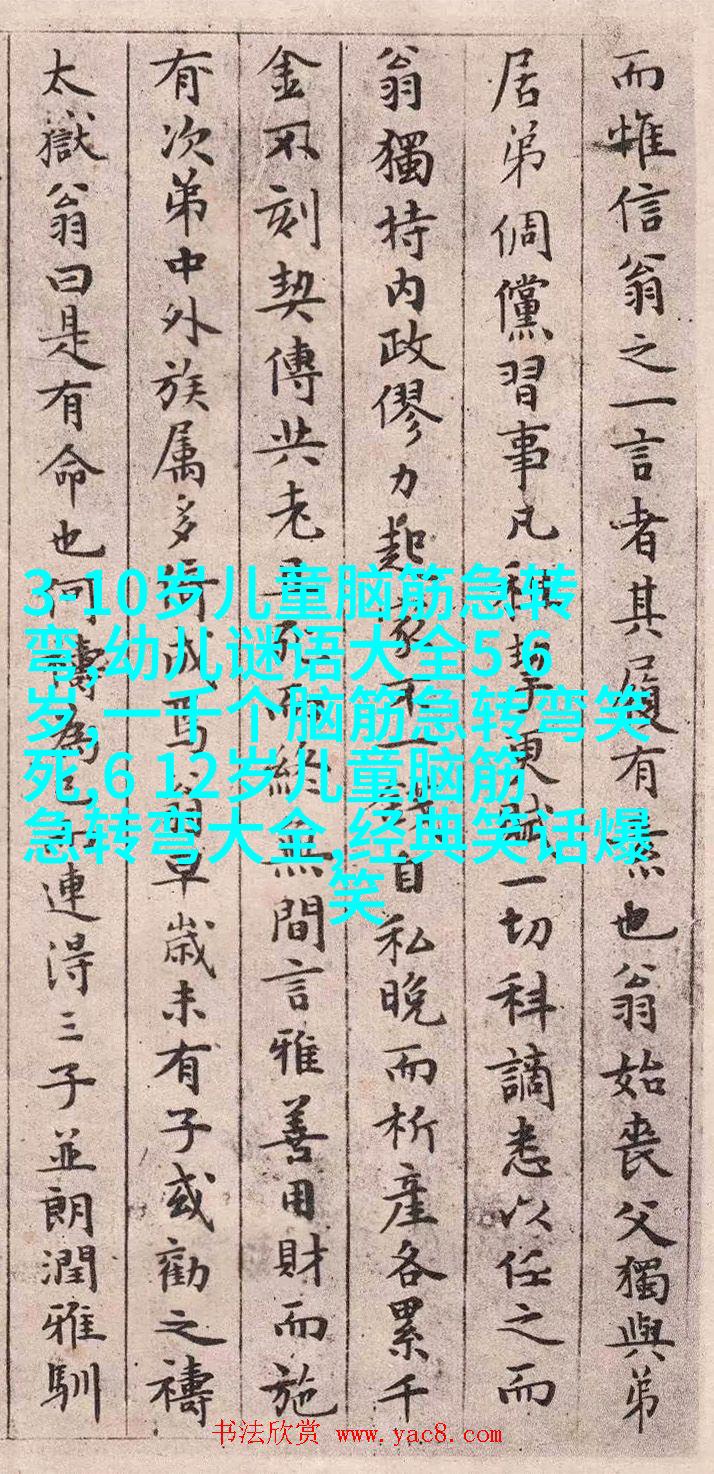 而惟信翁之一言者其履有素也翁始喪父獨與弟
居弟倜儻習事凡程挈更賦一切科謫悉以任之而
翁獨持内政僇力起家不一錢自私晚而析產各累千
金不刻契傳共老至死而終無間言雅善用財而施
有次第中外族属多倚成焉翁早歲未有子或勸之禱
太嶽翁曰是有命也何禱為已而連得三子並朗潤雅馴
3-10岁儿童脑筋急转
弯,幼儿谜语大全5 6
岁,一千个脑筋急转弯笑
死,6 12岁儿童脑筋
急转弯大全,经典笑话爆
笑
书法欣赏 www.yac8.com